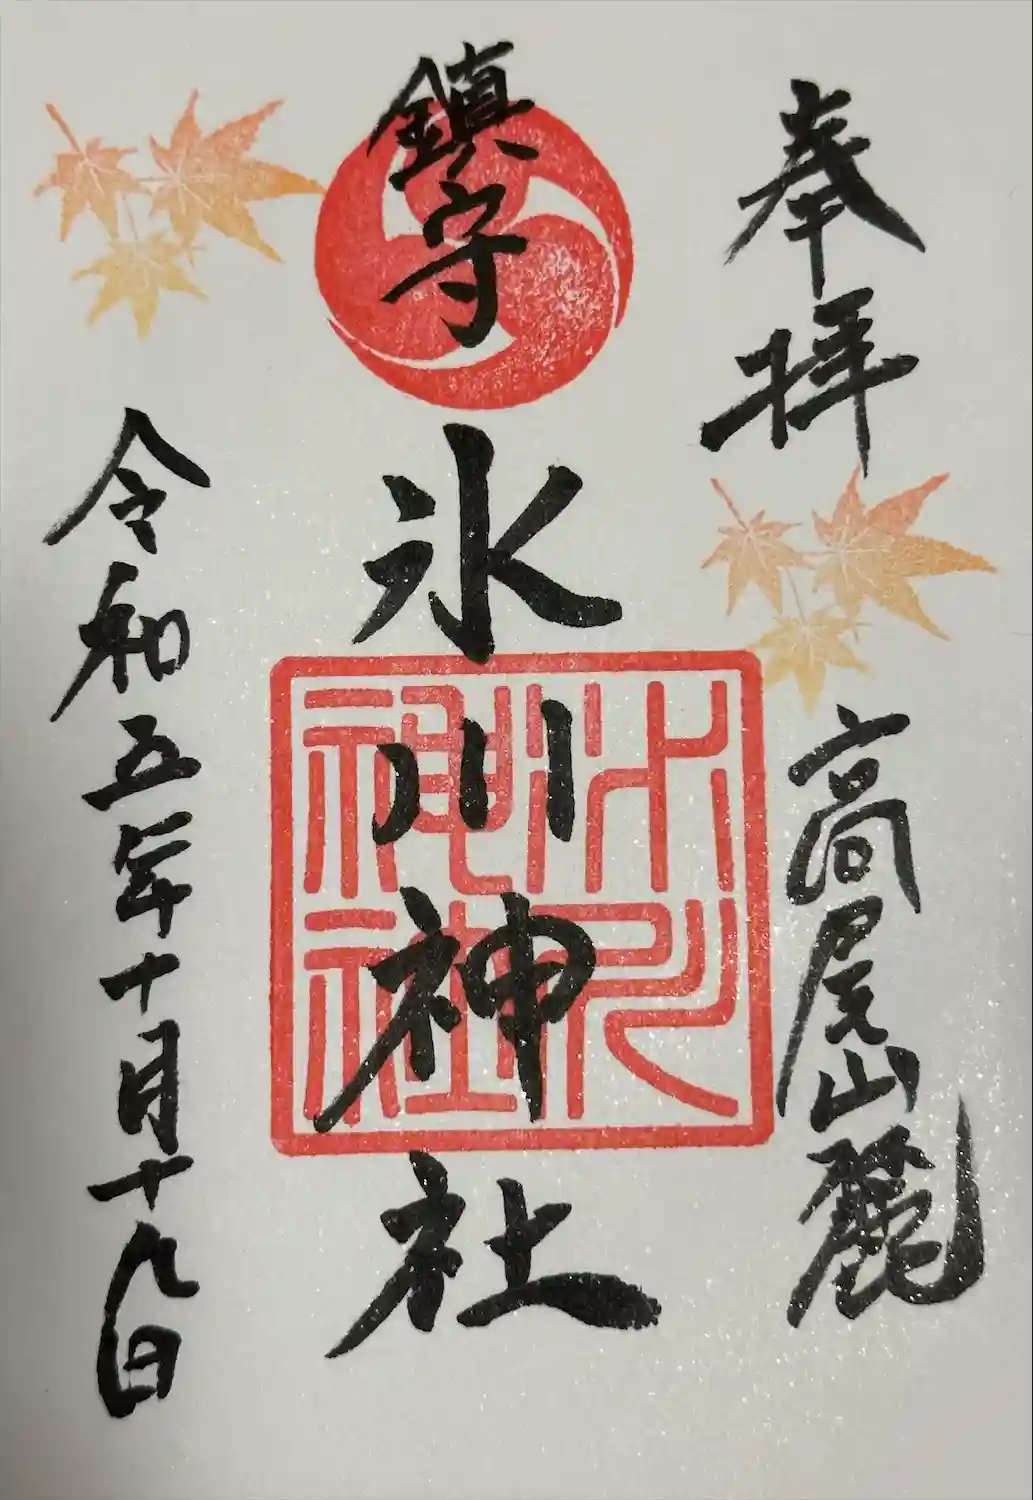 奉拝
高尾山麓
鎮守
氷川神社
氷川
神社
令和五年十月十九日